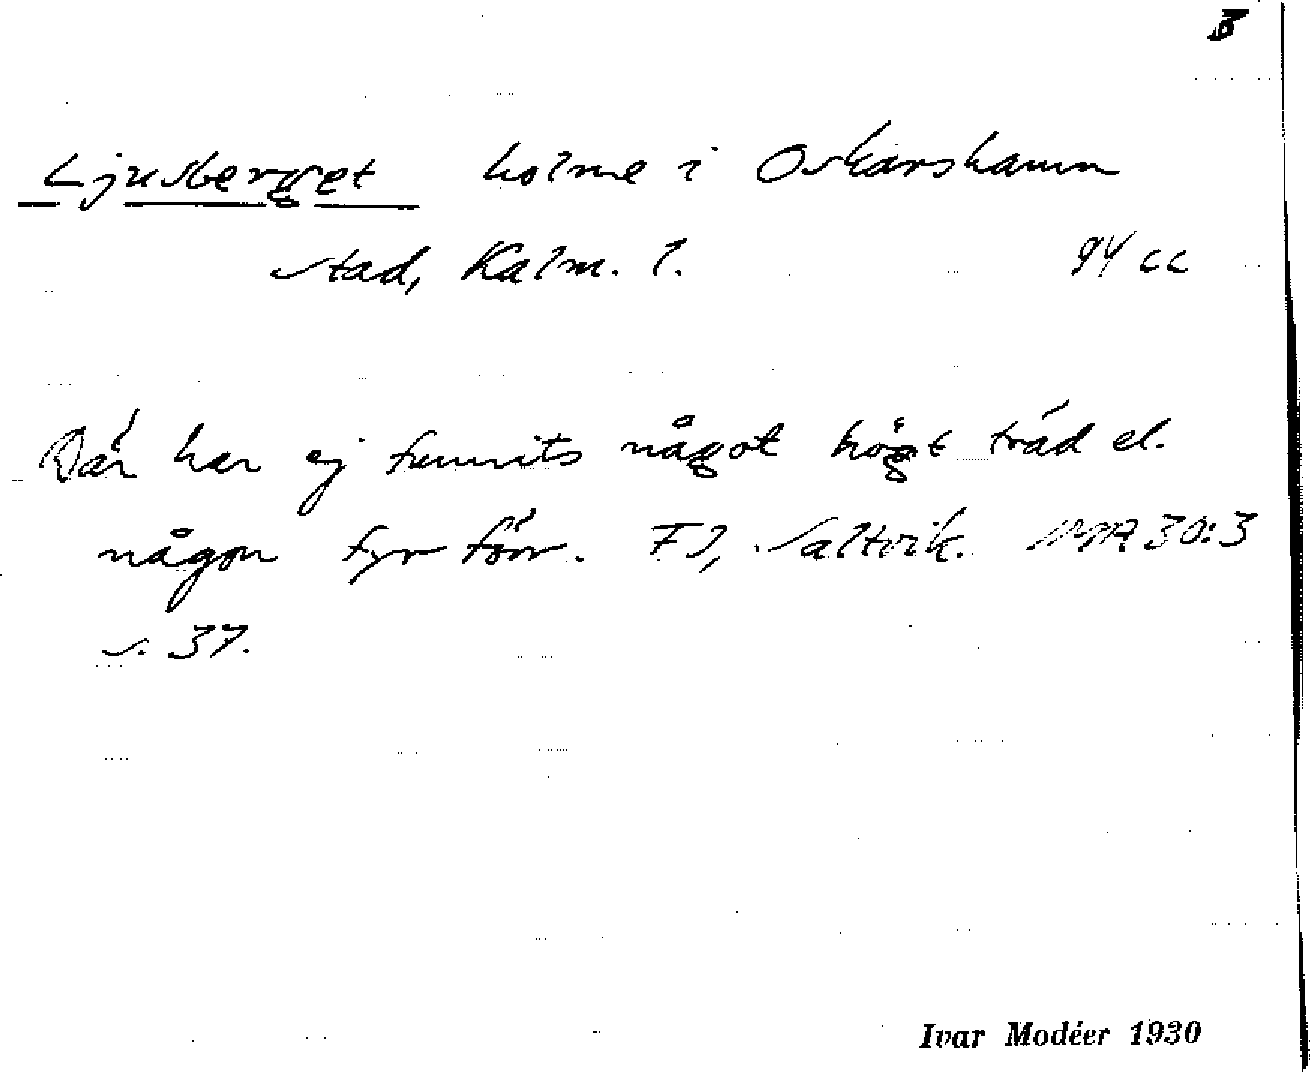 3
Ljusberget holme i Oskarshamn
stad, Kalm. l. 94 cc
Där har ej funnits något högt träd el.
någon fyr förr. FJ, Saltvik. 30:3
s. 37.
Ivar Modéer 1930